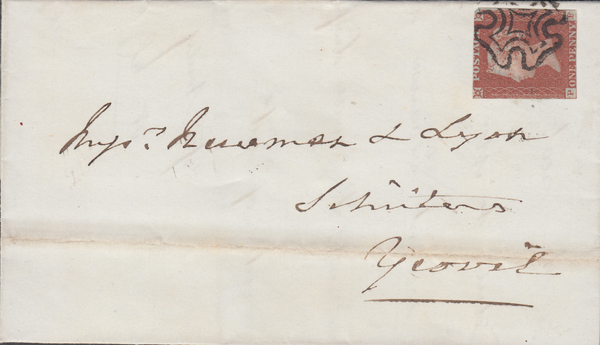 POSTAGE
ONE PENNY
P
Messrs. Newman & Lyon
Solicitors
Yeovil